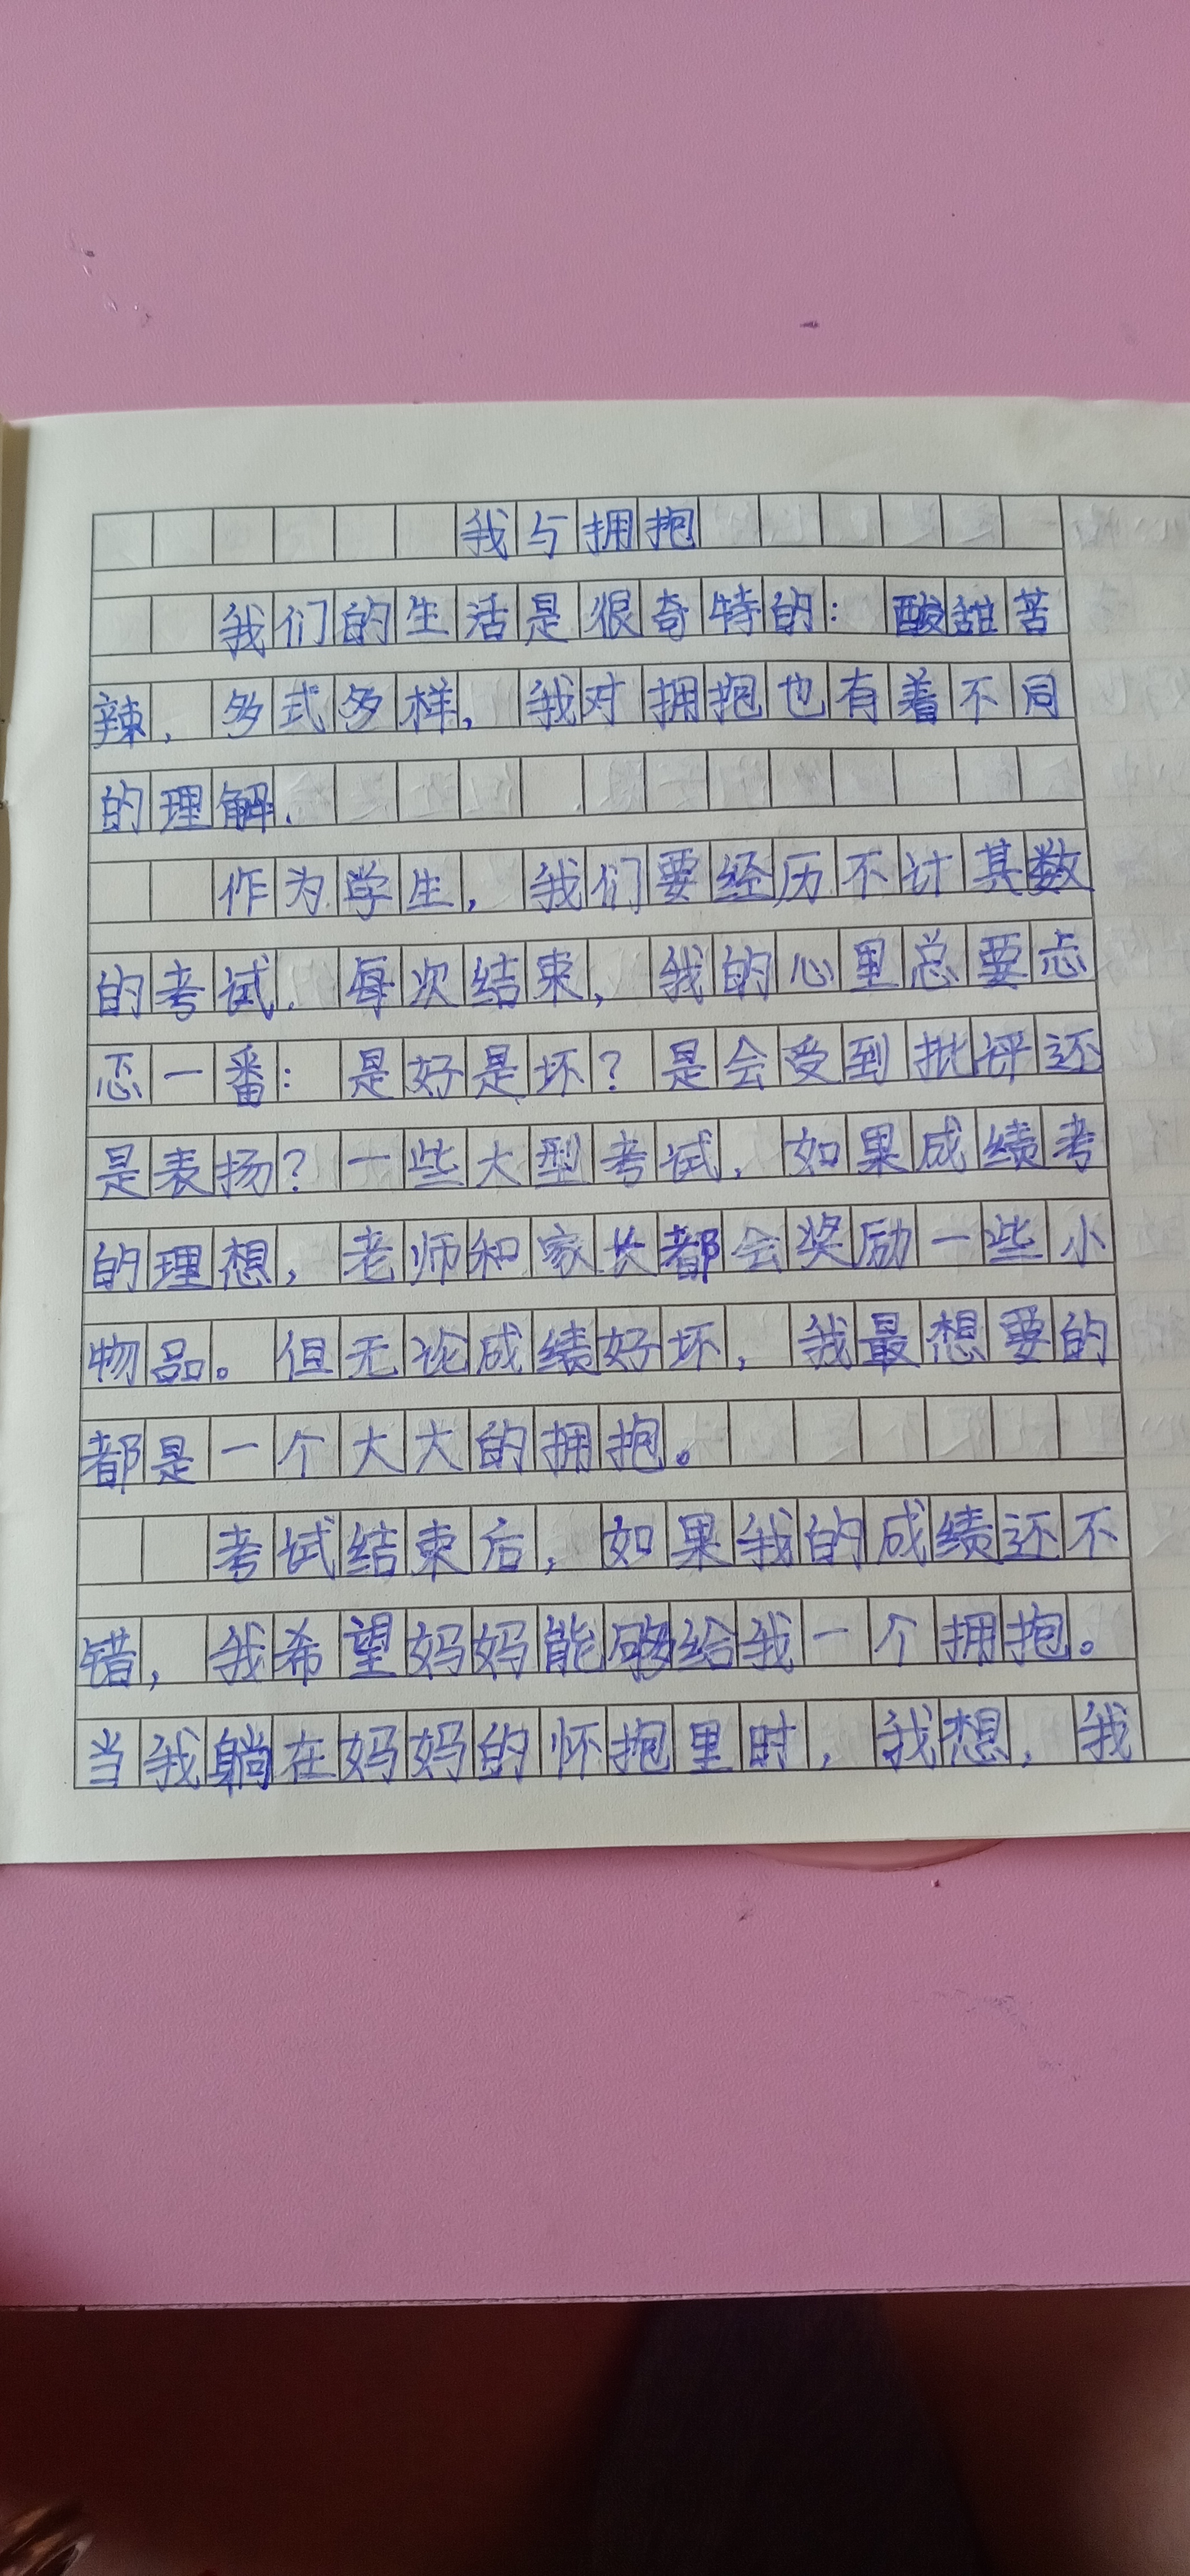 我与拥抱
我们的生活是很奇特的：酸甜苦
辣，多式多样，我对拥抱也有着不同
的理解.
作为学生，我们要经历不计其数
的考试.每次结束，我的心里总要忐
忑一番：是好是坏？是会受到批评还
是表扬？一些大型考试，如果成绩考
的理想，老师和家长都会奖励一些小
物品。但无论成绩好坏，我最想要的
都是一个大大的拥抱。
考试结束后，如果我的成绩还不
错，我希望妈妈能够给我一个拥抱。
当我躺在妈妈的怀抱里时，我想，我